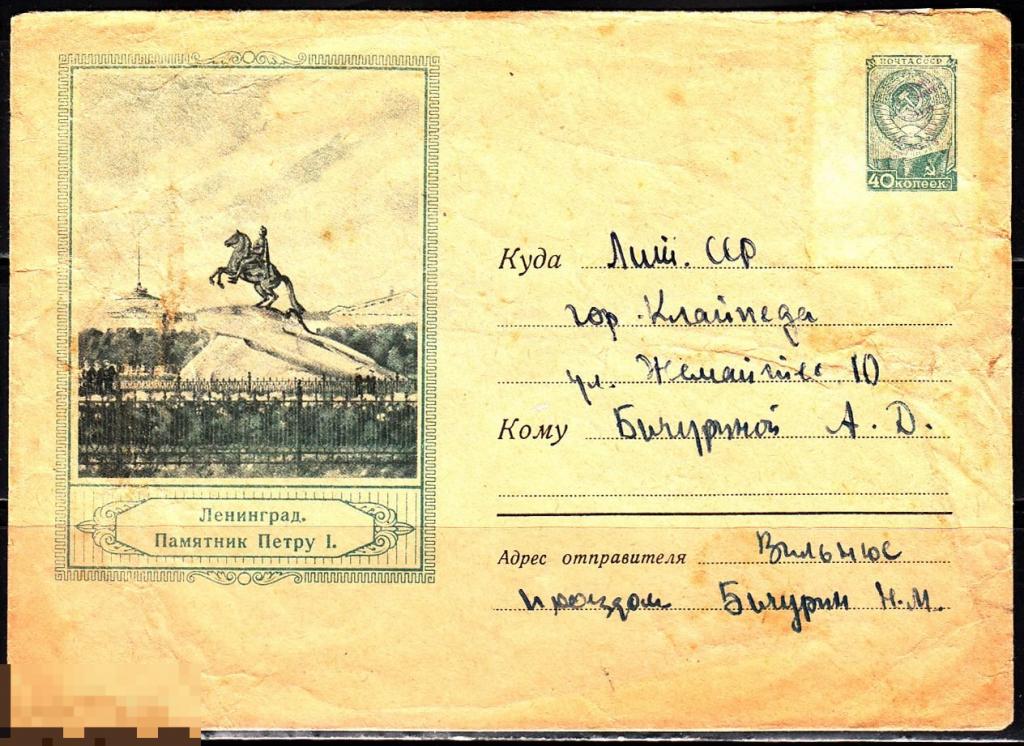 ПОЧТА СССР
40 копеек
Куда Лит. ССР
гор. Клайпеда
ул. Жемайтес 10
Кому Бичуриной А. Д.
Ленинград.
Памятник Петру I.
Адрес отправителя Вильнюс
проездом Бичурин Н. М.